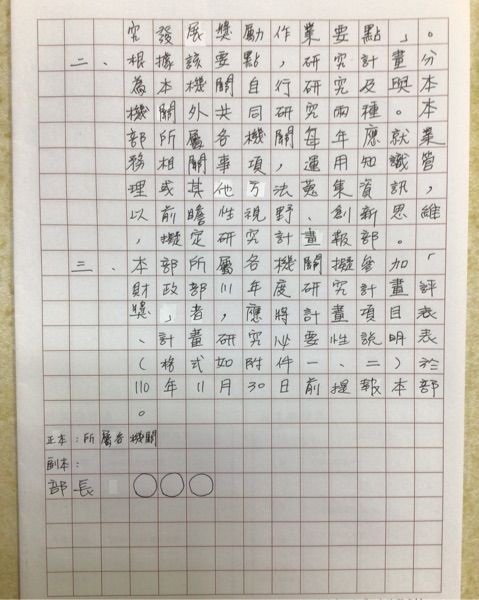 究發展獎勵作業要點」。
二、根據該要點，研究計畫分
為本機關自行研究及與本
機關外共同研究兩種。本
部所屬各機關每年應就業
務相關事項，運用知識管
理或其他方法蒐集資訊，
以前瞻性視野、創新思維
，擬定研究計畫報部。
三、本部所屬各機關擬參加「
財政部111年度研究計畫評
獎」者，應將計畫項目表
、計畫研究必要性說明表
（格式如附件一、二）於
110年11月30日前提報本部
。
正本：所屬各機關
副本：
部長 ○○○